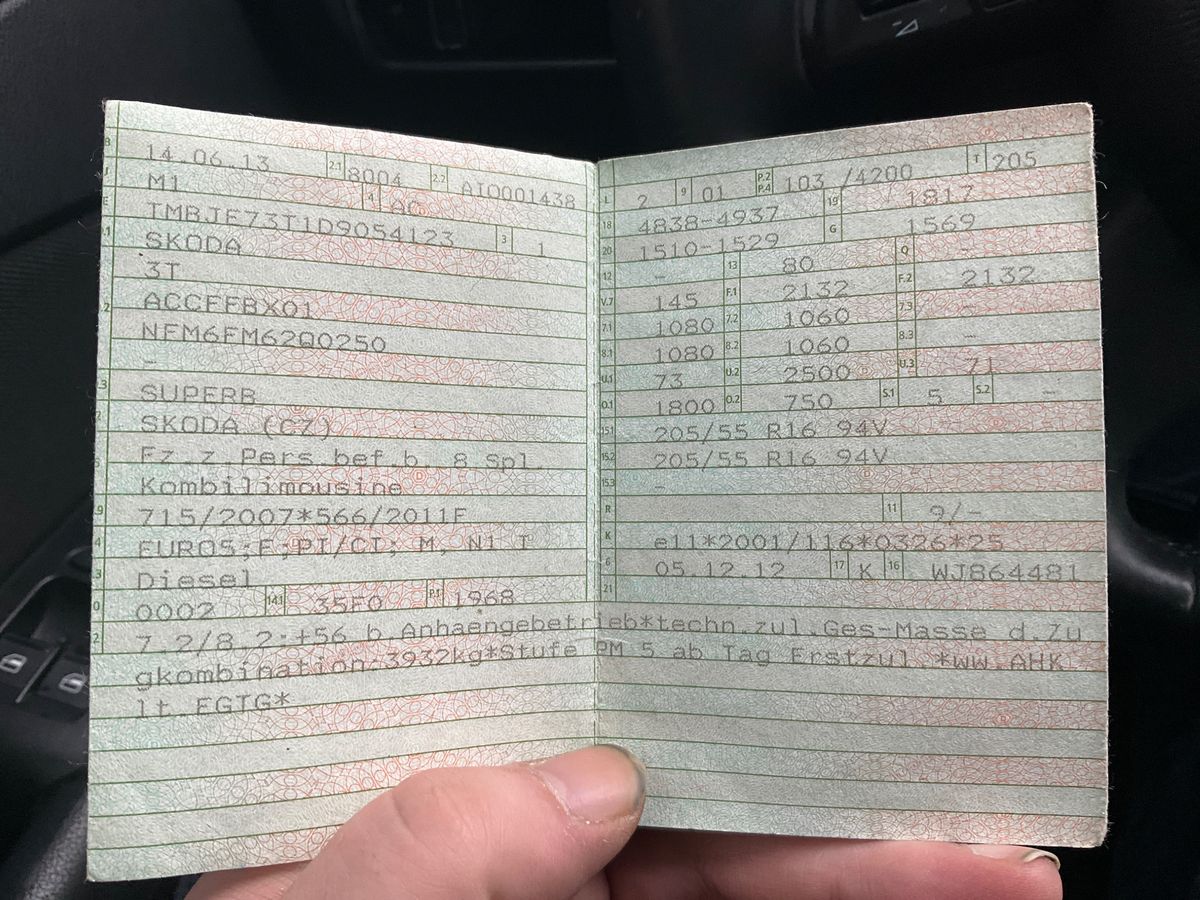 14.06.13 2.1 8004 2.2 AIO001438
M1 4 AC
TMBJF73T1D9054123 3 1
SKODA
3T
ACCFFBX01
NFM6FM62Q0250
-
SUPERB
SKODA (CZ)
Fz.z.Pers.bef.b. 8 Spl.
Kombilimousine
715/2007*566/2011F
EURO5;F;PI/CI; M, N1 I
Diesel
0002 14.1 35F0 P.1 1968
L 2 9 01 P.2 P.4 103 /4200 T 205
18 4838-4937 19 1817
20 1510-1529 G 1569
12 - 13 80 Q -
V.7 145 F.1 2132 F.2 2132
7.1 1080 7.2 1060 7.3 -
8.1 1080 8.2 1060 8.3 -
U.1 73 U.2 2500 U.3 71
O.1 1800 O.2 750 S.1 5 S.2 -
15.1 205/55 R16 94V
15.2 205/55 R16 94V
15.3 -
R 11 9/-
K e11*2001/116*0326*25
6 05.12.12 17 K 16 WJ864481
21
7.2/8.2:+56 b.Anhaengebetrieb*techn.zul.Ges-Masse d.Zu
gkombination 3932kg*Stufe PM 5 ab Tag Erstzul.*ww.AHK
lt.EGTG*